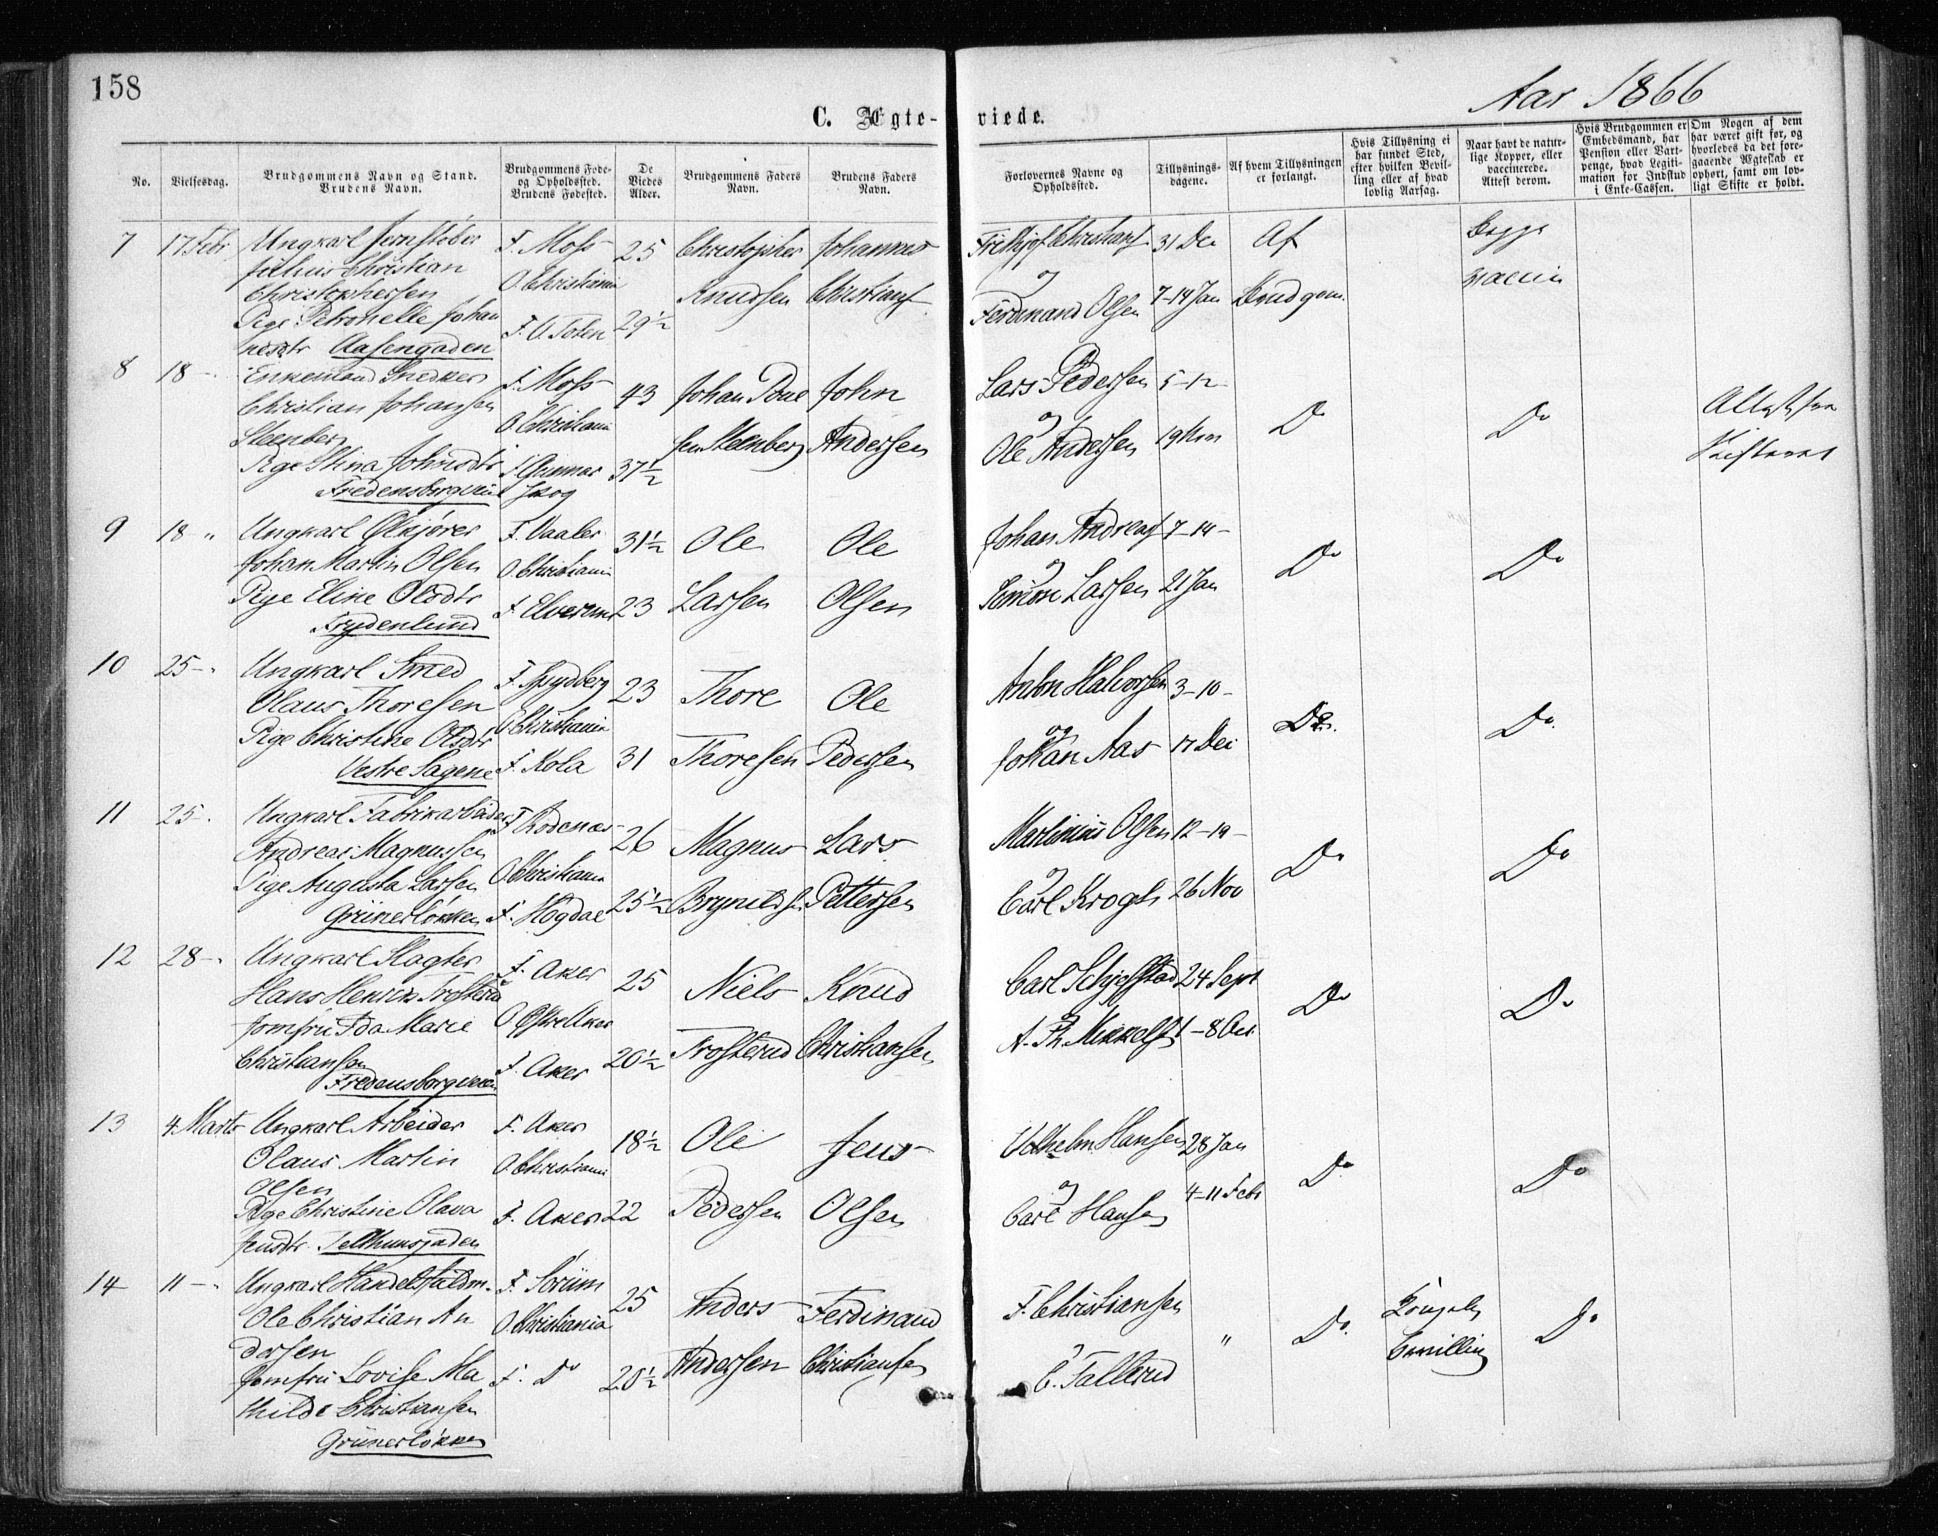 158
Aar 1866
C. Ægte-
viede.
No.
Vielsesdag.
Brudgommens Navn og Stand.
Brudens Navn.
Brudgommens Føde-
og Opholdssted.
Brudens Fødested.
De
Viedes
Alder.
Brudgommens Faders
Navn.
Brudens Faders
Navn.
Forlovernes Navne og
Opholdssted.
Tillysnings-
dagene.
Af hvem Tillysningen
er forlangt.
Hvis Tillysning ei
har fundet Sted,
efter hvilken Bevil-
ling eller af hvad
lovlig Aarsag.
Naar havt de natur-
lige Kopper, eller
vaccinerede.
Attest derom.
Hvis Brudgommen er
Embedsmand, har
Pension eller Vart-
penge, hvad Legiti-
mation for Indskud
i Enke-Cassen.
Om Nogen af dem
har været gift før, og
hvorledes da det fore-
gaaende Ægteskab er
ophørt, samt om lov-
ligt Skifte er holdt.
7 17 Febr Ungkarl Jernstøber
Julius Christian
Christophersen
Pige Petronelle Johan
nesdtr Aasengaden
F. Moss
O. Christiania
F. V. Toten
25
29½
Christopher
Knudsen
Johannes
Christians.
Frithjof Christians.
og
Ferdinand Olsen
31 Dec
7-14 Jan
Af
Brudgom.
Begge
vaccin
8 18 - Enkemand Snedker
Christian Johansen
Steenberg
Pige Stina Johnsdtr
Fredensborgveien
F. Moss
O. Christiania
F. Gunnar
skog
43
37½
Johan Poul
sen Steenberg
John
Andersen
Lars Pedersen
og
Ole Andersen
5-12
19 Nov
Do
Do
Attest fra
Skifteret
9 18 " Ungkarl Ølkjører
Johan Martin Olsen
Pige Eline Olsdtr
Frydenlund
F. Vaaler
O. Christiania
F. Elverum
31½
23
Ole
Larsen
Ole
Olsen
Johan Andreas
og
Simon Larsen
7-14-
21 Jan
Do
Do
10 25 -. Ungkarl Smed
Olaus Thoresen
Pige Christine Olsdtr
Vestre Sagene
F. Spydberg
O. Christiania
F. Kola
23
31
Thore
Thoresen
Ole
Pedersen
Anton Halvorsen
og
Johan Aas
3-10-
17 Dec
Do.
Do.
11 25 -. Ungkarl Fabrikarbeider
Andreas Magnussen
Pige Augusta Larsen
Grünerløkken
F. Rodenæs
O. Christiania
F. Høgdal
26
25½
Magnus
Brynilds.
Lars
Pettersen
Martinius Olsen
og
Carl Krogh
12-19-
26 Nov
Do
Do
12 28 -. Ungkarl Slagter
Hans Henrik Trosterud
Jomfru Ida Marie
Christiansen
Fredensborgveien
F. Aker
F. Aker
25
20½
Niels
Trosterud
Knud
Christiansen
Carl
og
A. Th. Mikkels.
24 Sept
1-8 Oct
Do
Do
13 4 Marts Ungkarl Arbeider
Olaus Martin
Olsen
Pige Christine Olava
Jensdtr. Telthusgaden
F. Aker
O. Christiania
F. Aker
18½
22
Ole
Pedersen
Jens
Olsen
Vilhelm Hansen
og
Carl Hansen
28 Jan
4-11 Febr
Do
Do
14 11 -. Ungkarl Handelsfuldm.
Ole Christian An
dersen
Jomfru Lovise Ma
thilde Christiansen
Grünerløkken
F. Sørum
O. Christiania
F. Do
25
20½
Anders
Andersen
Ferdinand
Christiansen
F. Christiansen
og
C. Fallerud
"
Do.
Kongelig
Bevilling
Do